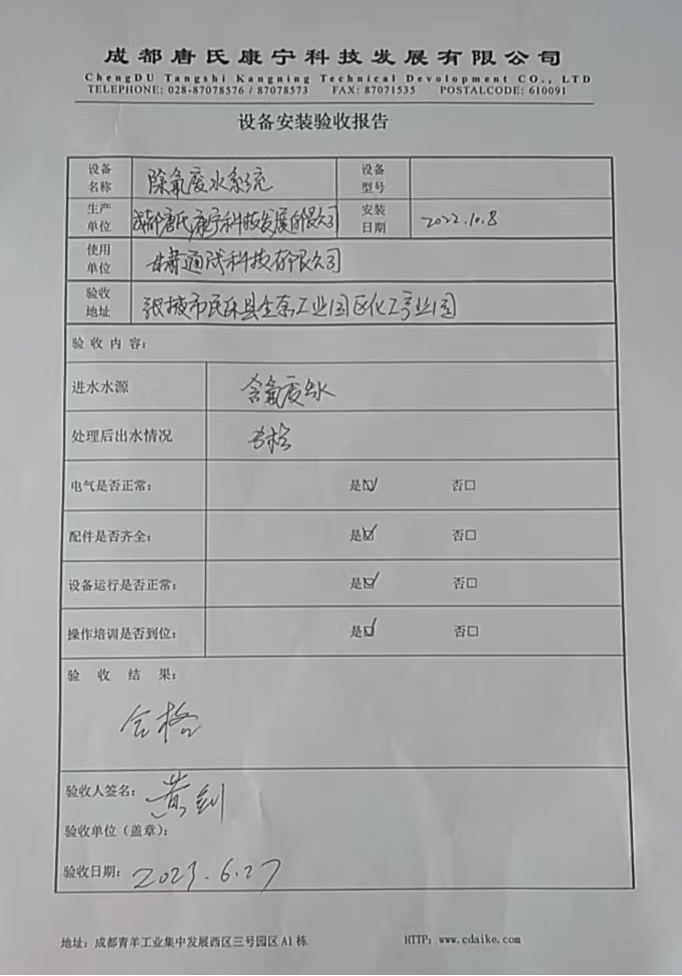 成都唐氏康宁科技发展有限公司
ChengDU Tangshi Kangning Technical Devolopment CO., LTD
TELEPHONE: 028-87078576 / 87078573 FAX: 87071535 POSTALCODE: 610091
设备安装验收报告
设备名称 除氟废水系统 设备型号
生产单位 成都唐氏康宁科技发展有限公司 安装日期 2022.10.8
使用单位 甘肃通 科技有限公司
验收地址 张掖市民乐县生态工业园区化工产业园
验收内容:
进水水源 含氟废水
处理后出水情况 合格
电气是否正常: 是☑ 否□
配件是否齐全: 是☑ 否□
设备运行是否正常: 是☑ 否□
操作培训是否到位: 是☑ 否□
验收结果:
合格
验收人签名: 黄
验收单位(盖章):
验收日期: 2023.6.27
地址: 成都青羊工业集中发展西区三号园区A1栋 HTTP: www.cdaike.com